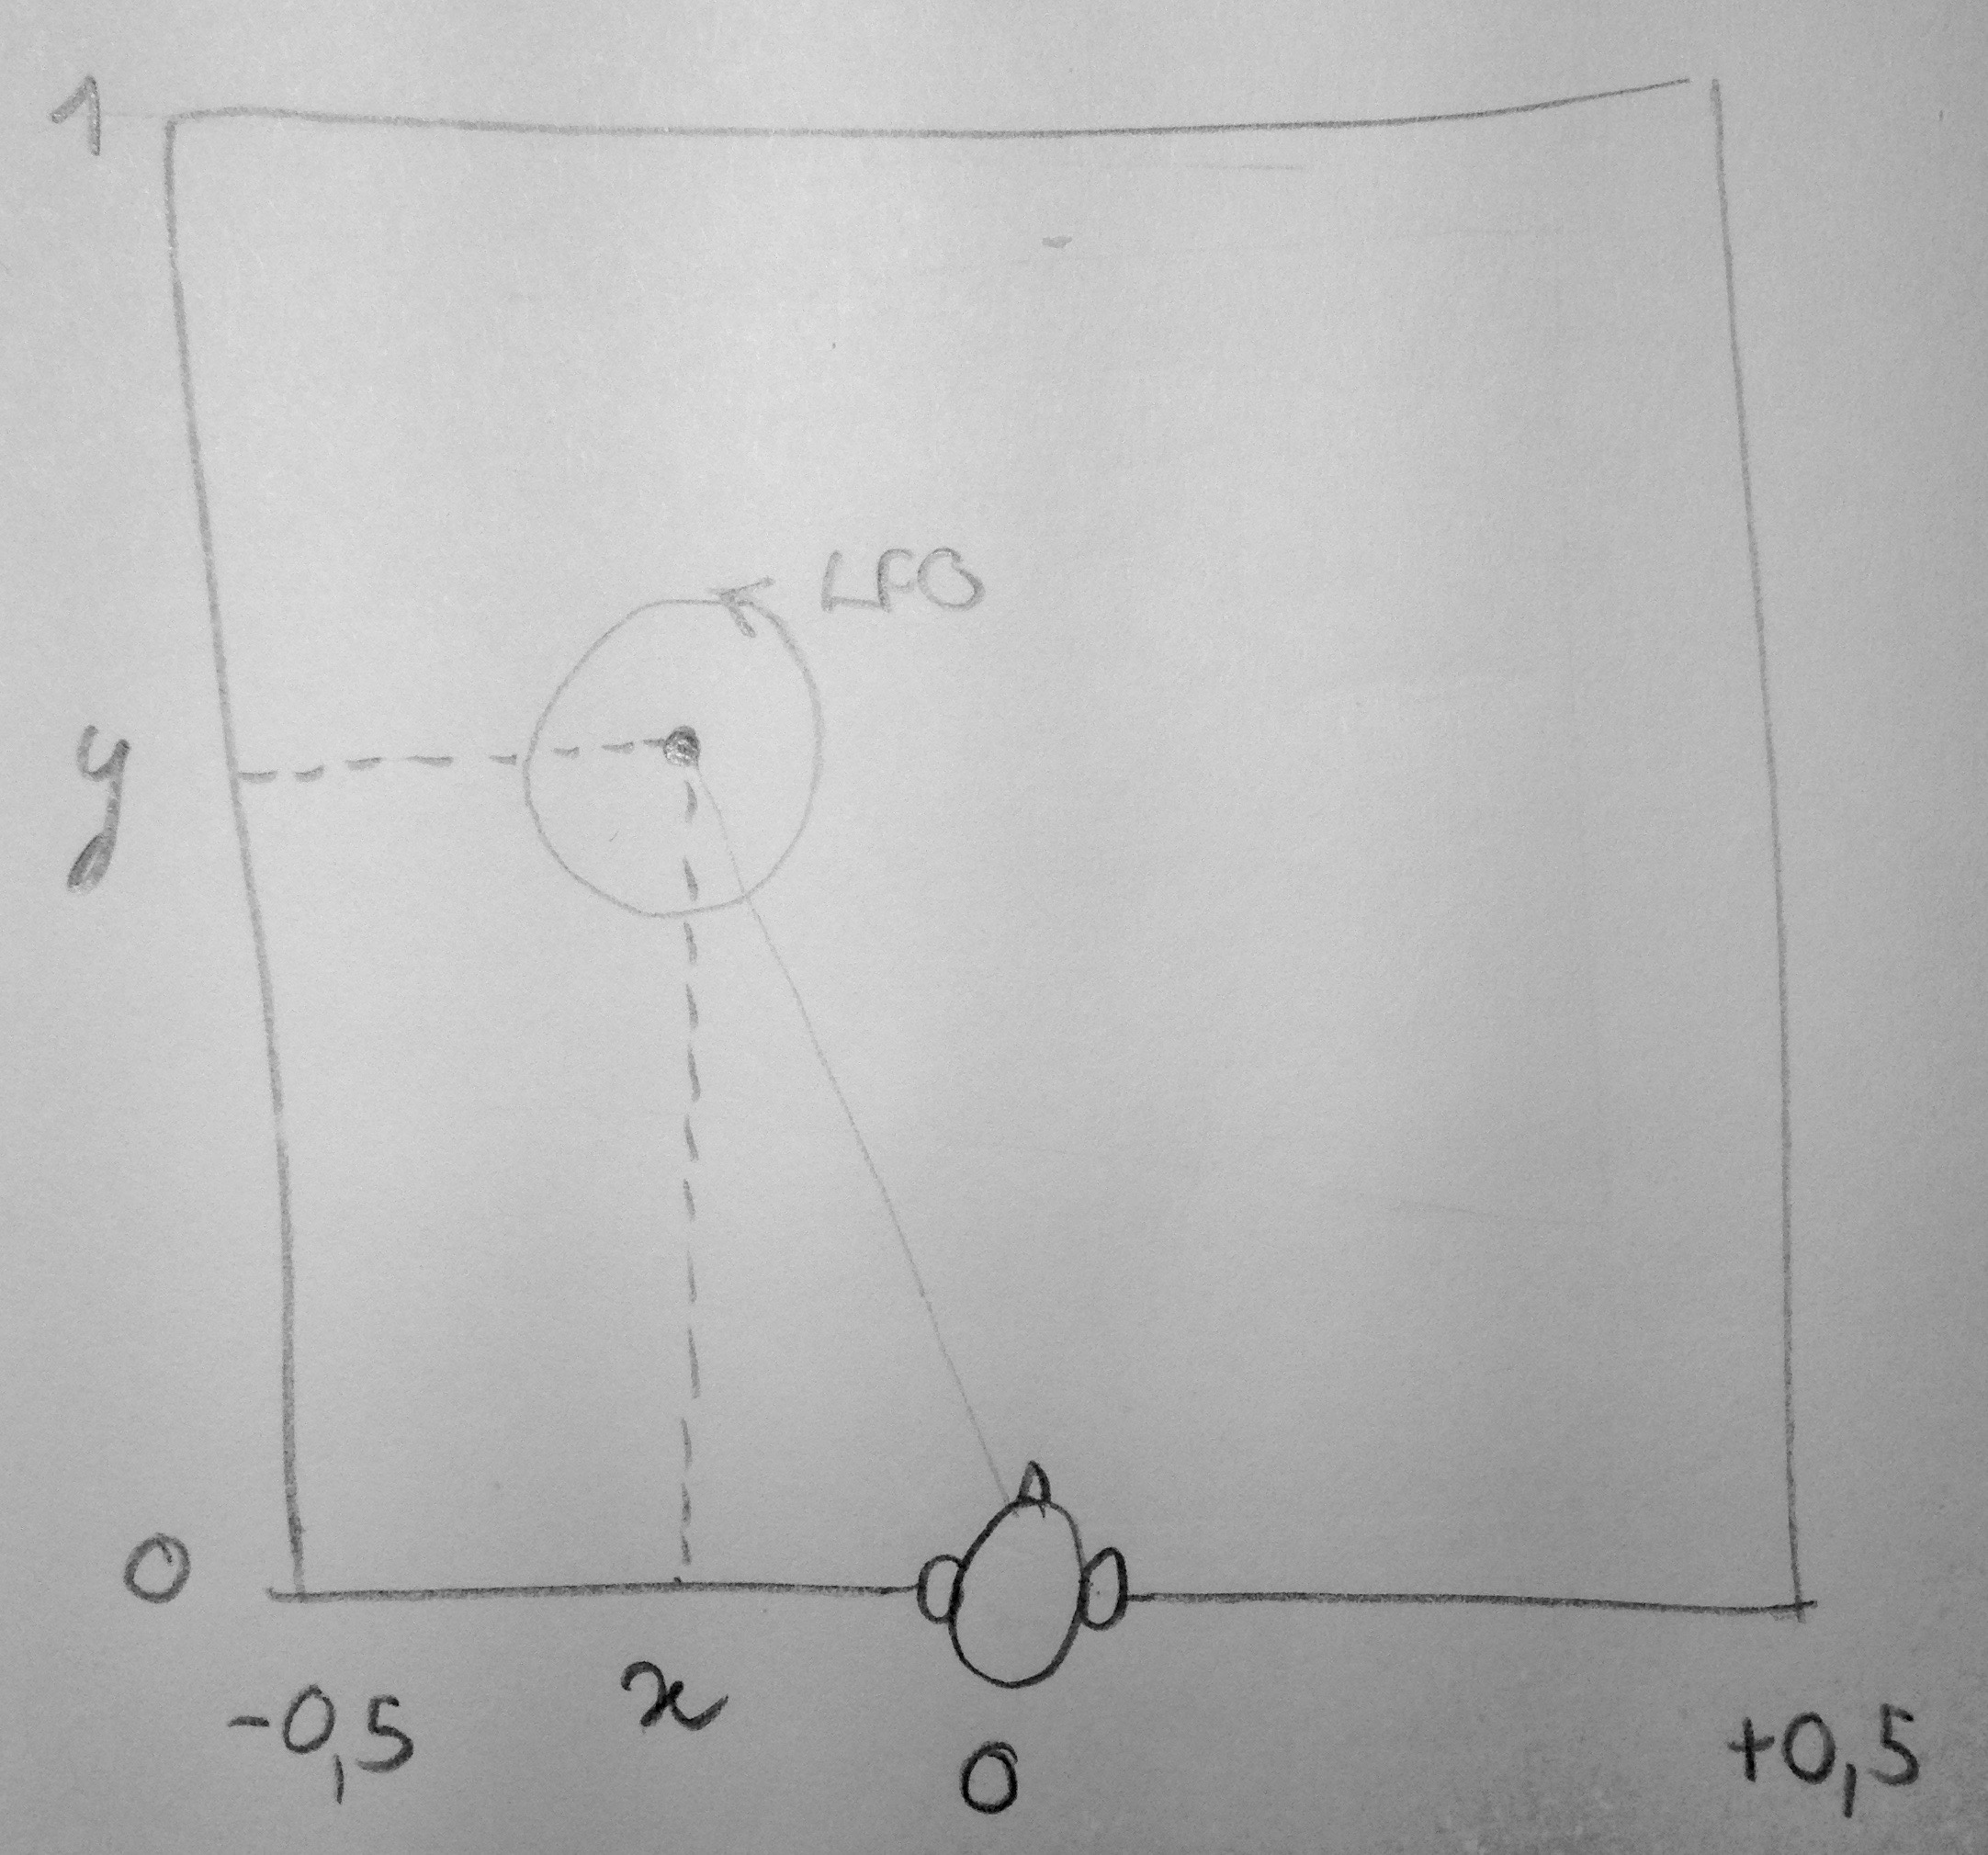 1
LFO
y
0
-0,5
x
0
+0,5